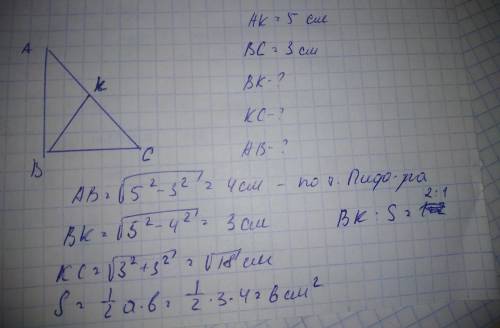 AK = 5 см
BC = 3 см
BK - ?
KC - ?
AB - ?
A
K
B
C
AB = √5² - 3² = 4 см - по т. Пифо-ра
BK = √5² - 4² = 3 см
BK : S = 2:1
KC = √3² + 3² = √18 см
S = 1/2 a · b = 1/2 · 3 · 4 = 6 см²